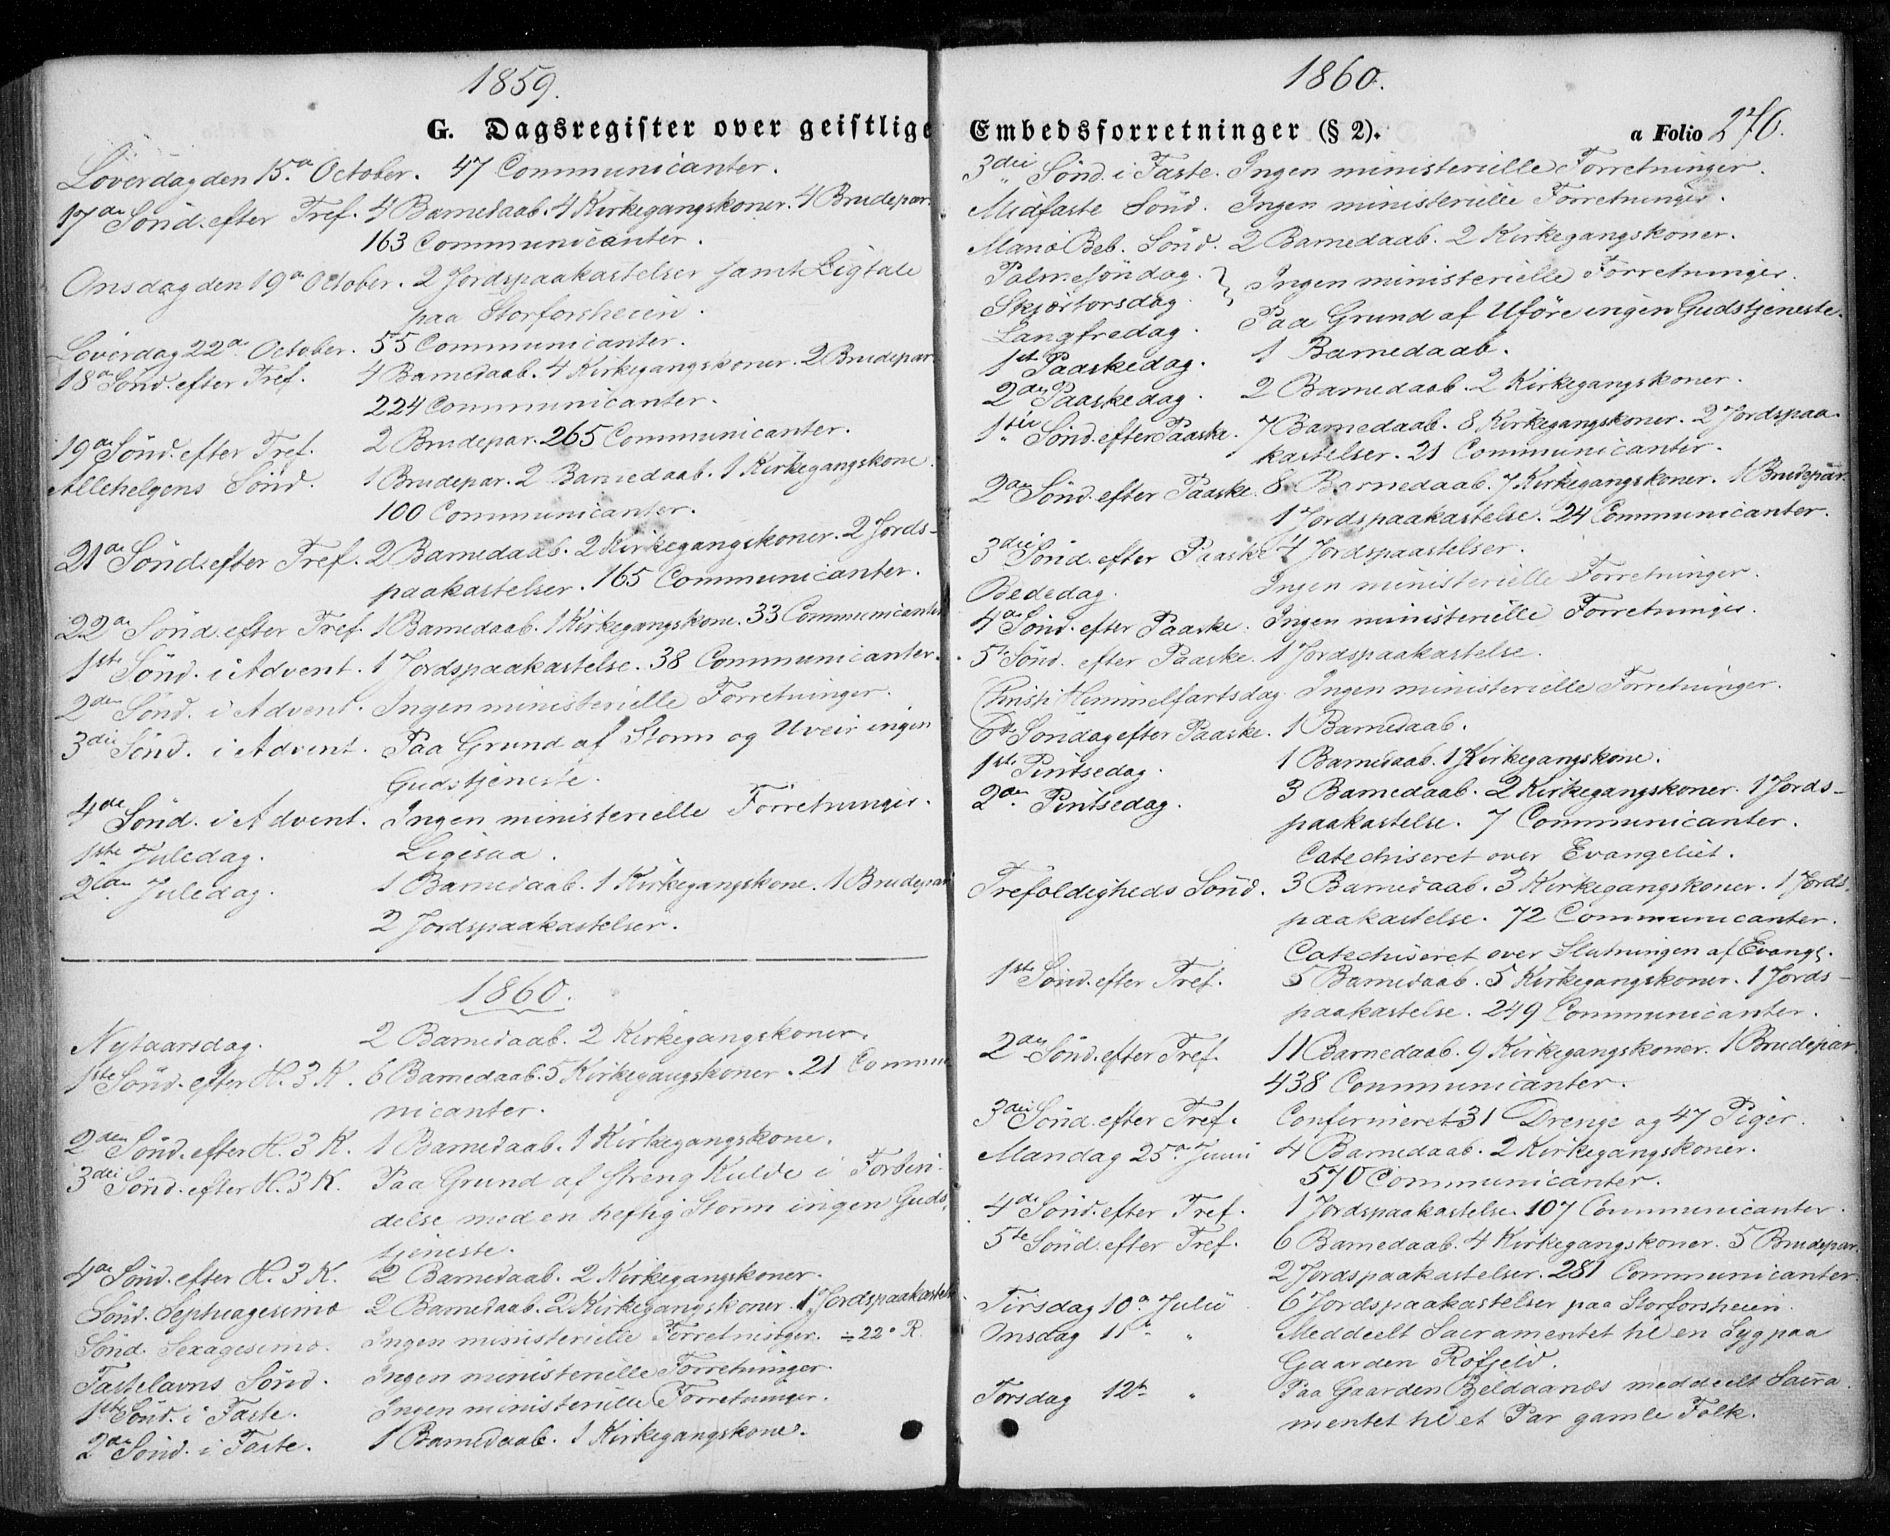 1859.
G. Dagsregister over geistlige
Løverdag den 15de October. 47 Communicanter.
17de Sønd. efter Tref. 4 Barnedaab. 4 Kirkegangskoner. 4 Brudepar.
163 Communicanter.
Onsdag den 19de October. 2 Jordspaakastelser samt Ligtale
paa Storforsheien.
Løverdag 22de October. 55 Communicanter.
18de Sønd. efter Tref. 4 Barnedaab. 4 Kirkegangskoner. 2 Brudepar
224 Communicanter.
19de Sønd. efter Tref. 2 Brudepar. 265 Communicanter.
Allehelgens Sønd. 1 Brudepar. 2 Barnedaab. 1 Kirkegangskone.
100 Communicanter.
21de Sønd. efter Tref. 2 Barnedaab. 2 Kirkegangskoner. 2 Jords-
paakastelser. 165 Communicanter.
22de Sønd. efter Tref. 1 Barnedaab. 1 Kirkegangskone. 33 Communicanter
1ste Sønd. i Advent. 1 Jordspaakastelse. 38 Communicanter.
2den Sønd. i Advent. Ingen ministerielle Forretninger.
3die Sønd. i Advent. Paa Grund af Storm og Uveir ingen
Gudstjeneste.
4de Sønd. i Advent. Ingen ministerielle Forretninger.
1ste Juledag. Ligesaa.
2den Juledag. 1 Barnedaab. 1 Kirkegangskone. 1 Brudepar
2 Jordspaakastelser.
1860.
Nytaarsdag. 2 Barnedaab. 2 Kirkegangskoner.
1ste Sønd. efter H. 3 K. 6 Barnedaab. 5 Kirkegangskoner. 21 Commu
nicanter.
2den Sønd. efter H. 3 K. 1 Barnedaab. 1 Kirkegangskone.
3die Sønd. efter H. 3 K. Paa Grund af streng Kulde i Forbin-
delse med en heftig Storm ingen Guds
tjeneste.
4de Sønd. efter H. 3 K. 2 Barnedaab. 2 Kirkegangskoner.
Sønd. Septuagesimo 2 Barnedaab. 2 Kirkegangskoner. 1 Jordspaakastelse
Sønd. Sexagesimo. Ingen ministerielle Forretninger. ÷ 22° R.
Fastelavns Sønd. Ingen ministerielle Forretninger.
1ste Sønd. i Faste. Ingen ministerielle Forretninger.
2den Sønd. i Faste. 1 Barnedaab. 1 Kirkegangskone.
1860.
Embedsforretninger (§ 2). a Folio 276.
3die Sønd. i Faste. Ingen ministerielle Forretninger.
Midfaste Sønd. Ingen ministerielle Forretninger.
Mariæ Beb. Sønd. 2 Barnedaab. 2 Kirkegangskoner.
Palmesøndag.
Skjærtorsdag. } Ingen ministerielle Forretninger.
Langfredag. Paa Grund af Uføre ingen Gudstjeneste.
1ste Paaskedag. 1 Barnedaab.
2den Paaskedag. 2 Barnedaab. 2 Kirkegangskoner.
1ste Sønd. efter Paaske. 7 Barnedaab. 8 Kirkegangskoner. 2 Jordspaa-
kastelser. 21 Communicanter.
2den Sønd. efter Paaske. 8 Barnedaab. 7 Kirkegangskoner. 1 Brudepar.
1 Jordspaakastelse. 24 Communicanter.
3die Sønd. efter Paaske 4 Jordspaastelser.
Bededag. Ingen ministerielle Forretninger.
4de Sønd. efter Paaske. Ingen ministerielle Forretninger.
5te Sønd. efter Paaske. 1 Jordspaakastelse.
Christi Himmelfartsdag. Ingen ministerielle Forretninger.
6te Søndag efter Paaske. 1 Barnedaab.
1ste Pintsedag. 1 Barnedaab. 1 Kirkegangskone.
2den Pintsedag. 3 Barnedaab. 2 Kirkegangskoner. 1 Jords-
paakastelse. 7 Communicanter.
Catechiseret over Evangeliet.
Trefoldigheds Sønd. 3 Barnedaab. 3 Kirkegangskoner. 1 Jords-
paakastelse. 72 Communicanter.
Catechiseret over Slutningen af Evang.
1ste Sønd. efter Tref. 5 Barnedaab. 5 Kirkegangskoner. 1 Jords-
paakastelse. 249 Communicanter.
2den Sønd. efter Tref. 11 Barnedaab. 9 Kirkegangskoner. 1 Brudepar.
438 Communicanter.
3die Sønd. efter Tref. Confirmeret 31 Drenge og 47 Piger.
Mandag 25de Juni 4 Barnedaab. 2 Kirkegangskoner.
570 Communicanter.
4de Sønd. efter Tref. 1 Jordspaakastelse. 107 Communicanter.
5te Sønd. efter Tref. 6 Barnedaab. 4 Kirkegangskoner. 5 Brudepar.
2 Jordspaakastelser. 281 Communicanter.
Tirsdag 10de Juli 6 Jordspaakastelser paa Storforsheien.
Onsdag 11te " Meddeelt Sacramentet til en Syg paa
Gaarden Røfjeld.
Torsdag 12te " Paa Gaarden Bjeldaanæs meddeelt Sacra
mentet til et Par gamle Folk.